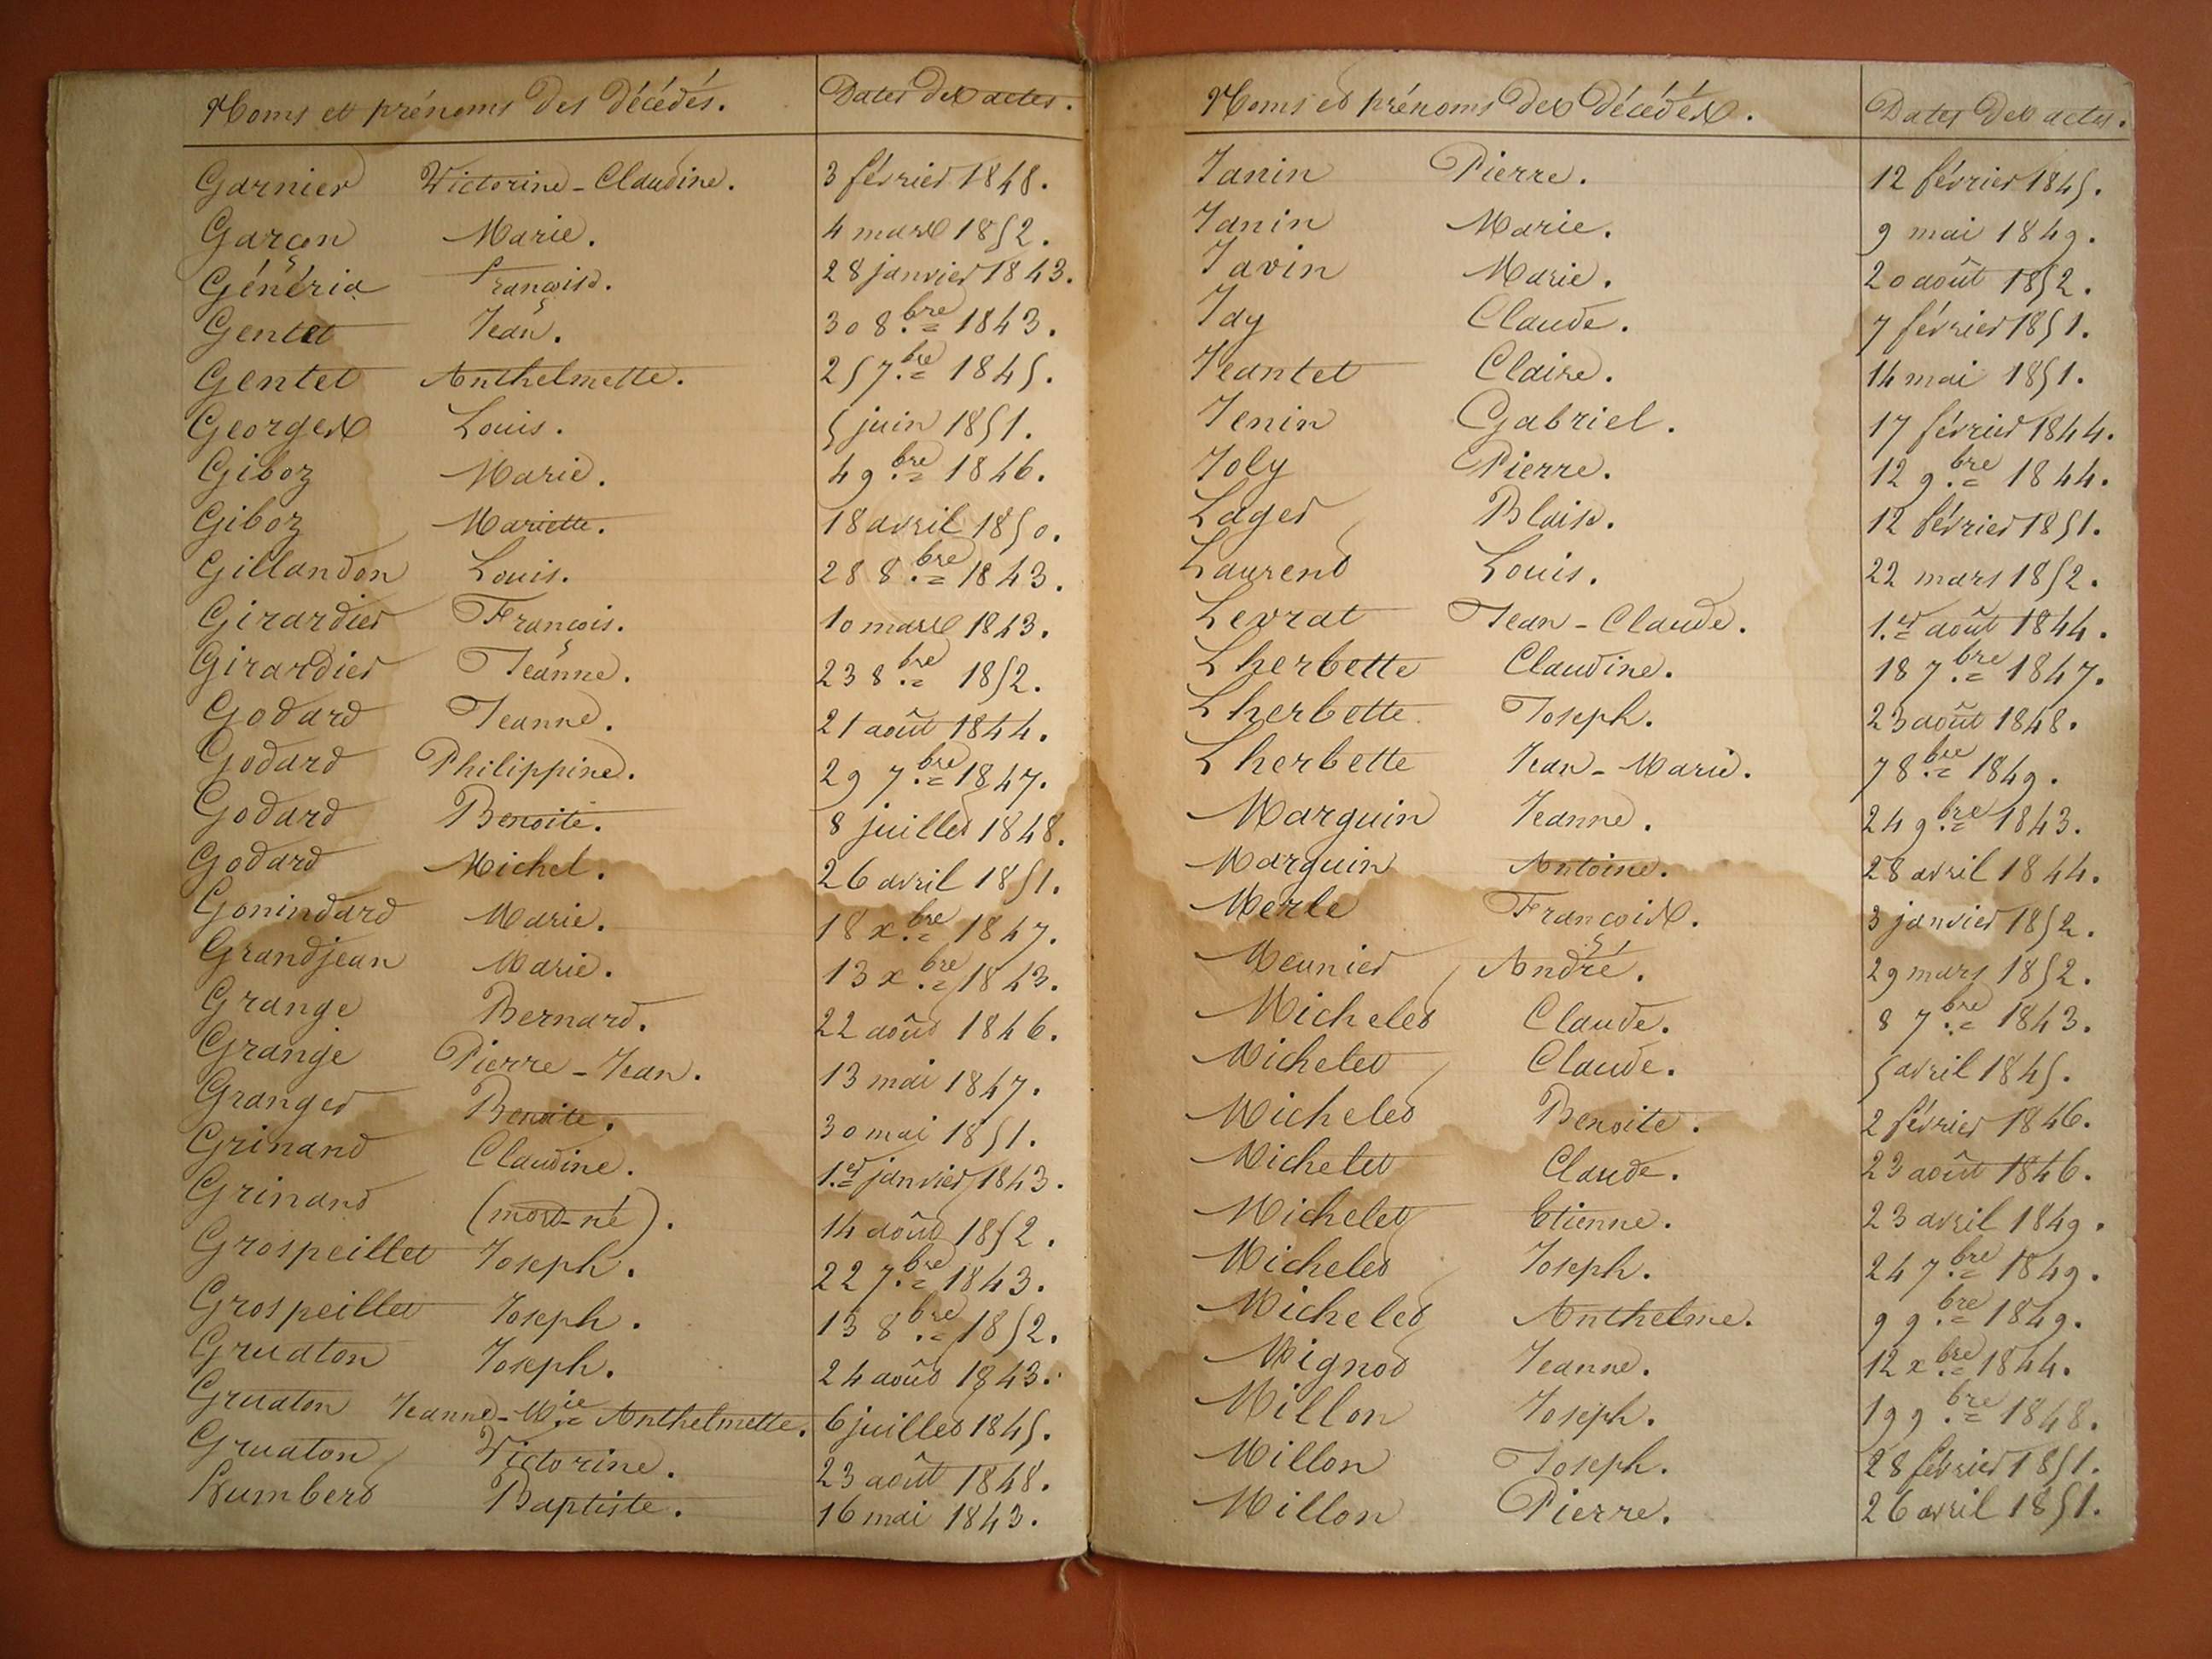 Noms et prénoms des décédés. Dates des actes.
Garnier Victorine-Claudine. 3 février 1848.
Garçon Marie. 4 mars 1852.
Généria François. 28 janvier 1843.
Gentet Jean. 30 8.bre 1843.
Gentet Anthelmette. 25 7.bre 1845.
Georges Louis. 5 juin 1851.
Giboz Marie. 4 9.bre 1846.
Giboz Mariette. 18 avril 1850.
Gillandon Louis. 28 8.bre 1843.
Girardier François. 10 mars 1843.
Girardier Jeanne. 23 8.bre 1852.
Godard Jeanne. 21 août 1844.
Godard Philippine. 29 7.bre 1847.
Godard Benoite. 8 juillet 1848.
Godard Michel. 26 avril 1851.
Gonindard Marie. 18 x.bre 1847.
Grandjean Marie. 13 x.bre 1843.
Grange Bernard. 22 août 1846.
Grange Pierre-Jean. 13 mai 1847.
Granger Benoite. 30 mai 1851.
Grinand Claudine. 1.er janvier 1843.
Grinand (mort-né). 14 août 1852.
Grospeillet Joseph. 22 7.bre 1843.
Grospeillet Joseph. 13 8.bre 1852.
Gruaton Joseph. 24 août 1843.
Gruaton Jeanne-M.ie Anthelmette. 6 juillet 1845.
Gruaton Victorine. 23 août 1848.
Humbert Baptiste. 16 mai 1843.
Noms et prénoms des décédés. Dates des actes.
Janin Pierre. 12 février 1845.
Janin Marie. 9 mai 1849.
Javin Marie. 20 août 1852.
Jay Claude. 7 février 1851.
Jeantet Claire. 14 mai 1851.
Jenin Gabriel. 17 février 1844.
Joly Pierre. 12 9.bre 1844.
Lager Blaise. 12 février 1851.
Laurent Louis. 22 mars 1852.
Levrat Jean-Claude. 1.er août 1844.
Lherbette Claudine. 18 7.bre 1847.
Lherbette Joseph. 23 août 1848.
Lherbette Jean-Marie. 7 8.bre 1849.
Marguin Jeanne. 24 9.bre 1843.
Marguin Antoine. 28 avril 1844.
Merle François. 3 janvier 1852.
Meunier André. 29 mars 1852.
Michelet Claude. 8 7.bre 1843.
Michelet Claude. 5 avril 1845.
Michelet Benoite. 2 février 1846.
Michelet Claude. 23 août 1846.
Michelet Etienne. 23 avril 1849.
Michelet Joseph. 24 7.bre 1849.
Michelet Anthelme. 9 9.bre 1849.
Mignot Jeanne. 12 x.bre 1844.
Millon Joseph. 19 9.bre 1848.
Millon Joseph. 28 février 1851.
Millon Pierre. 26 avril 1851.